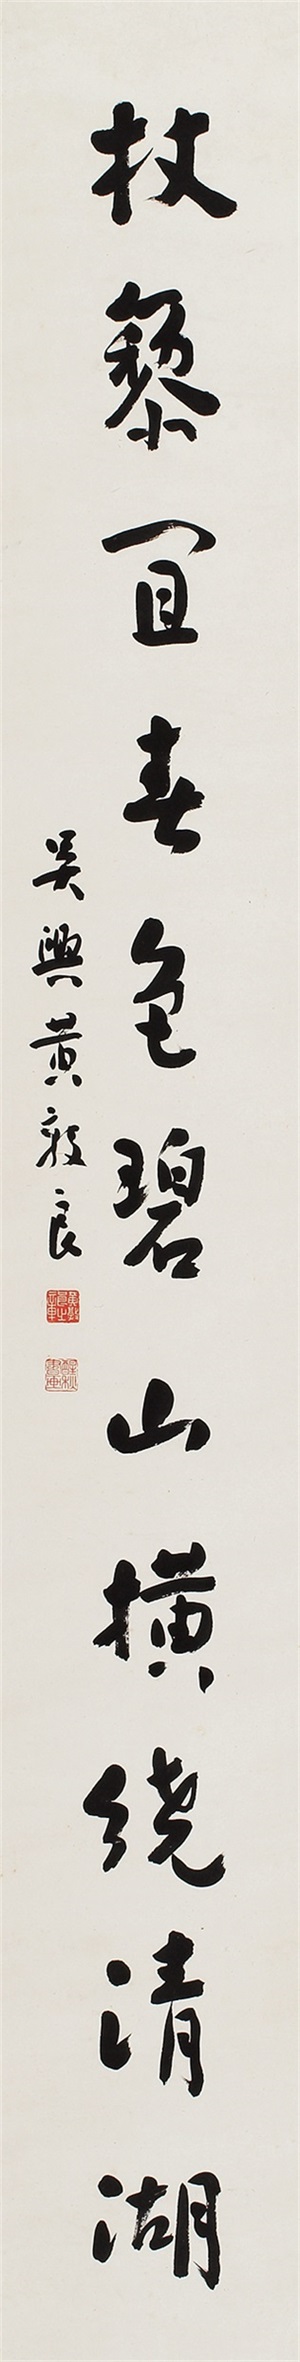 杖藜宜春色碧山横绕清湖
吴興黄敦良